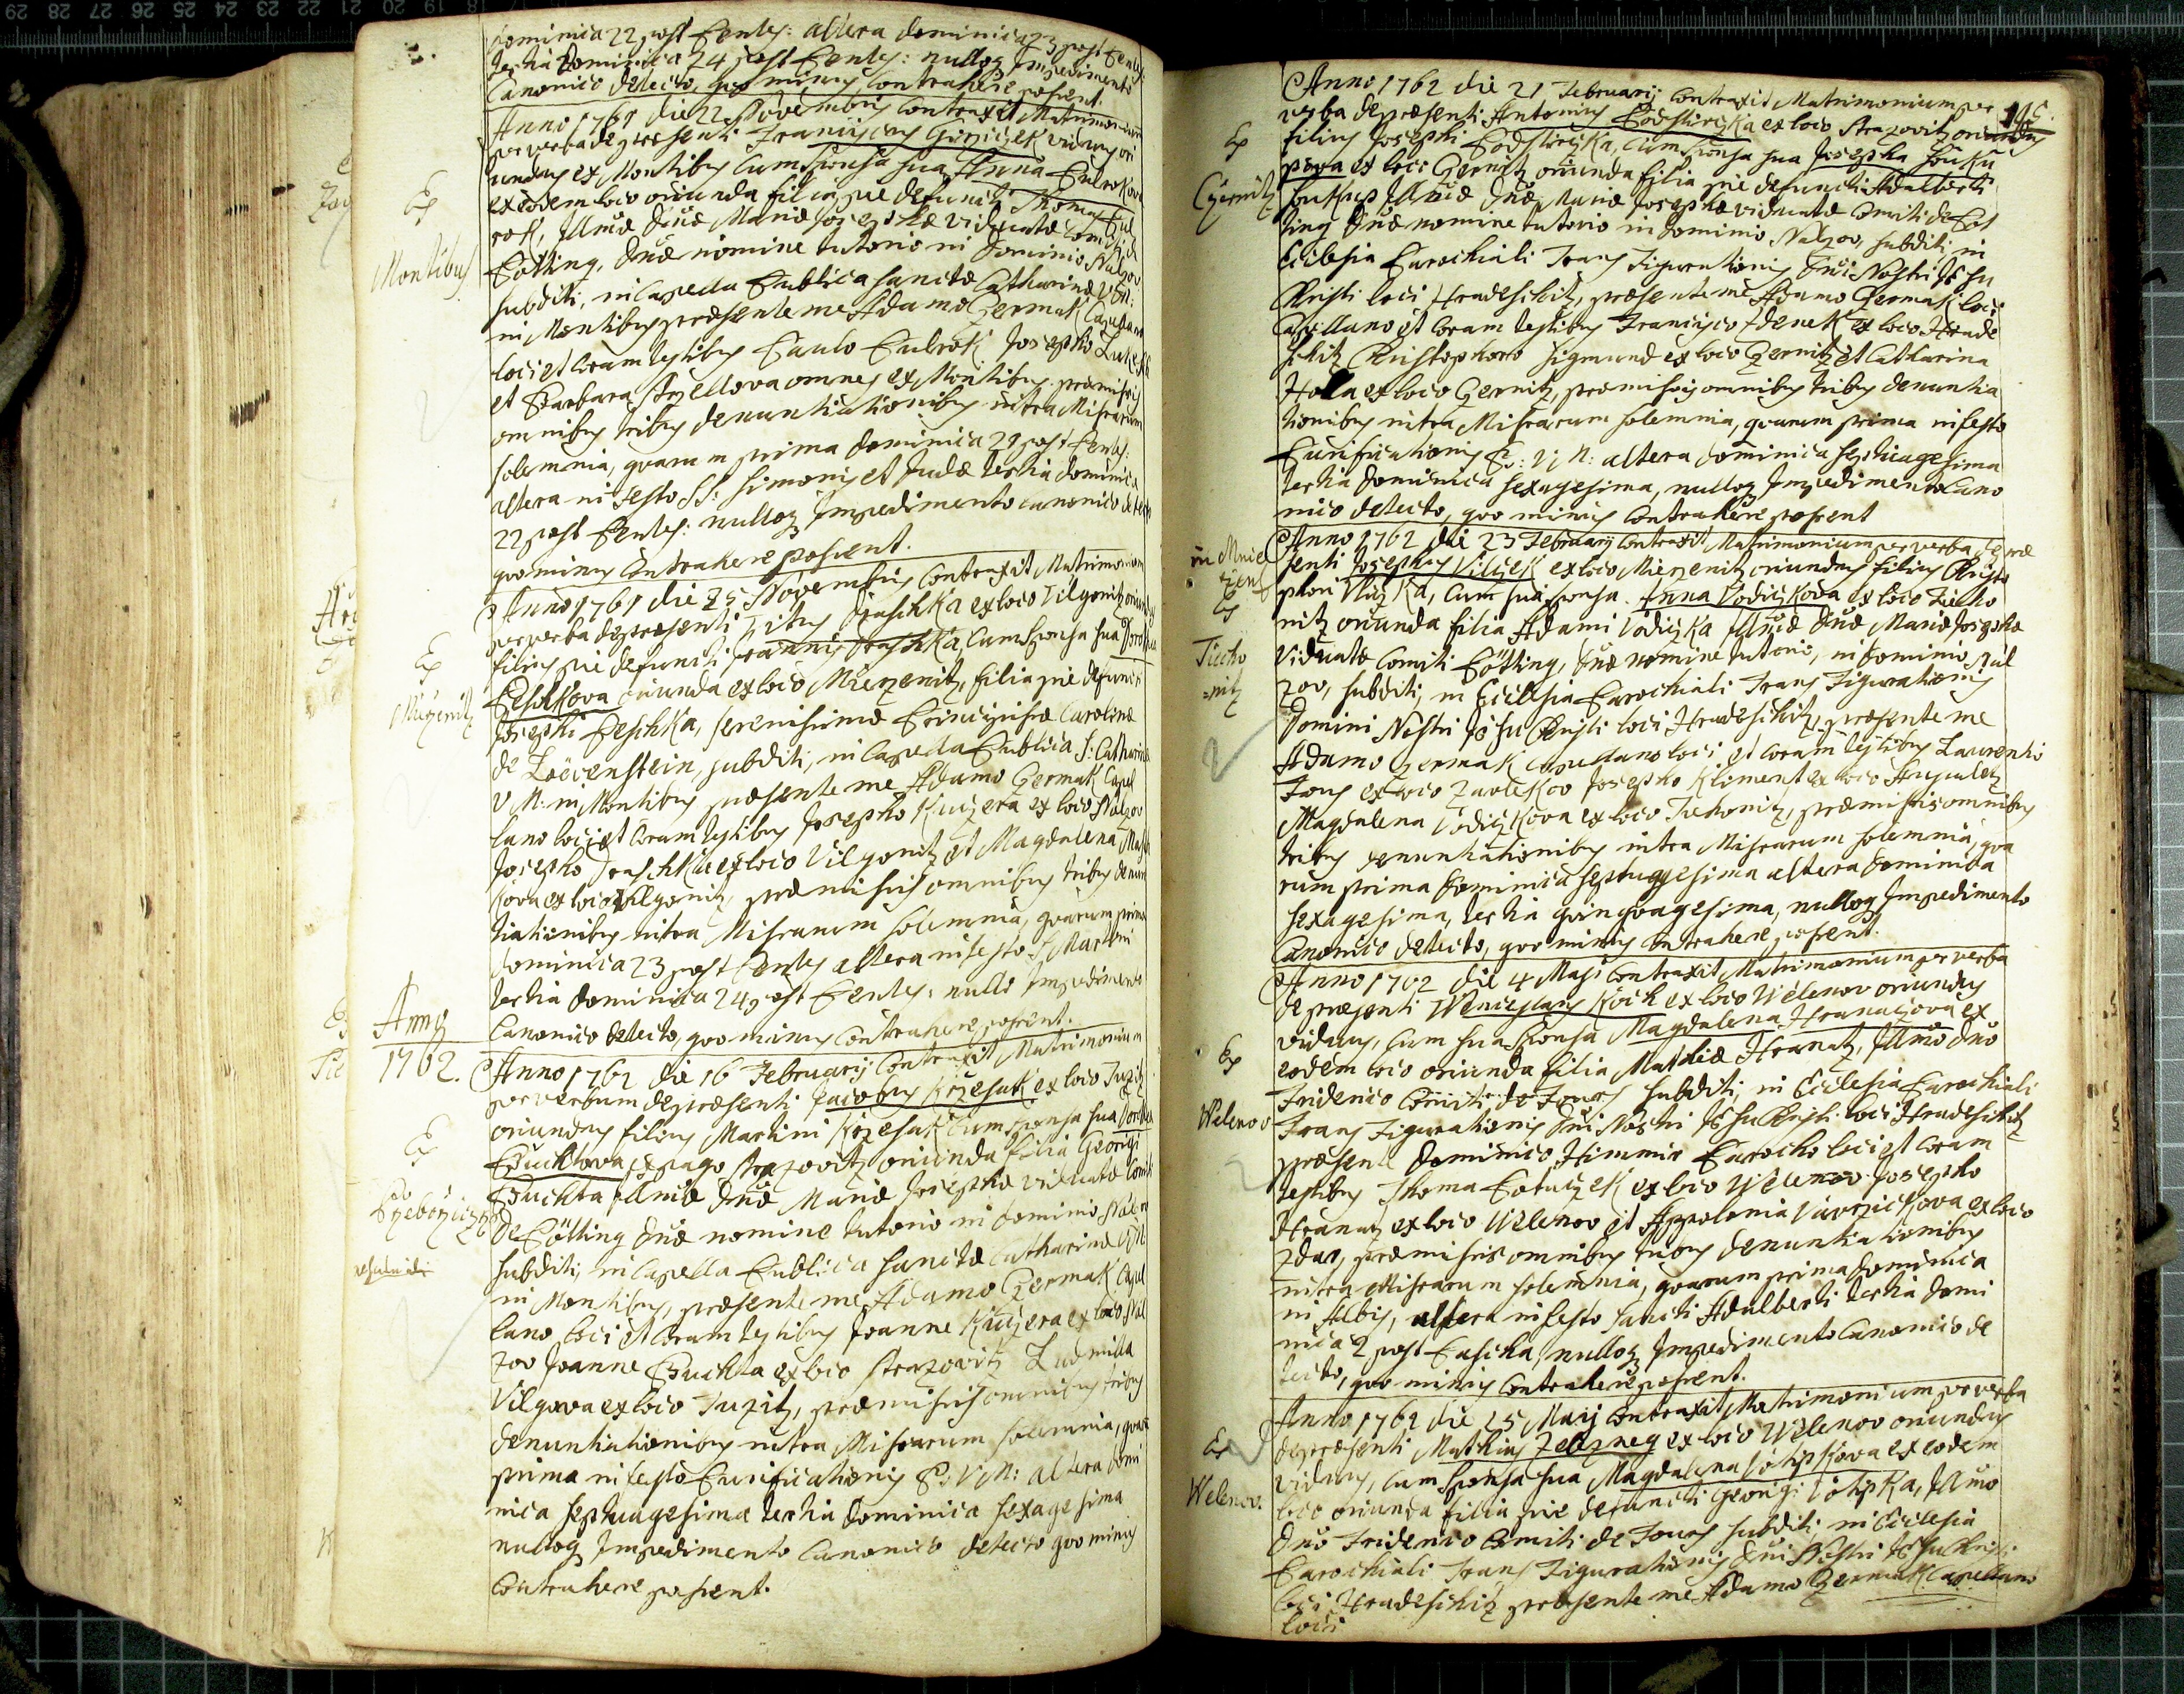 Dominica 22 post Pentes: altera dominica 23 post Pentes:
tertia Dominica 24 post Pentes: nulloq Impedimento
Canonico detecto, quo minus contrahere possent.
Anno 1761 die 22 Novembris Contraxit Matrimonium
per verba de praesenti Franciscus viduus ori
undus ex Montibus cum sponsa sua Anna
ex eodem loco oriunda filia pie defuncti Thomae
Illmae Dnae Mariae Josephae viduatae Comiti de
Pötting, Dnae nomine tutorio in Dominio Nalzov
subditi, in Capella Publica sanctae Catharinae V: M:
in Montibus praesente me Adamo Czermak Capellano
loci et Coram testibus Paulo Josepho
et Barbara omnes ex Montibus. praemissis
omnibus tribus denuntiationibus intra Missarum
solemnia, quarum prima Dominica 21 post Pentes:
altera in Festo SS: Simonis et Judae tertia dominica
22 post Pentes: nulloq Impedimento canonico detecto
quo minus Contrahere possent.
Anno 1761 die 25 Novembris Contraxit Matrimonium
per verba de praesenti Vitus Draschka ex loco Vilgonitz oriundus
filius pie defuncti Joannis Draschka, Cum Sponsa sua Dorothea
Peschkova oriunda ex loco Mierzenitz, filia pie defuncti
Josephi Peschka, serenissimae Principissae Carolinae
de Löevenstein, subditi, in Capella Publica S: Catharinae
V M: in Montibus praesente me Adamo Czermak Capel
lano loci et Coram testibus Josepho Kuczera ex loco Nalzov
Josepho Draschka ex loco Vilgonitz et Magdalena
ex loco Vilgonitz, praemissis omnibus tribus denun
tiationibus intra Missarum solemnia, quarum prima
dominica 23 post Pentes altera in festo S. Martini
tertia dominica 24 post Pentes: nullo Impedimento
Canonico detecto, quo minus Contrahere possent.
Anno 1762 die 16 Februarij Contraxit Matrimonium
per verbum de praesenti Jacobus Krzesak ex loco Tupitz
oriundus filius Martini Krzesak Cum sponsa sua Dorothea
Buchtova ex pago Strazovitz oriunda filia Georgi
Buchta Illmae Dnae Mariae Josephae viduatae Comiti
de Pötting Dnae nomine tutorio in dominio Nalzov
subditi, in Capella Publica sanctae Catharinae V: M:
in Montibus, praesente me Adamo Czermak Capel
lano loci et Coram testibus Joanne Kuczera ex loco Nal
zov Joanne Buchta ex loco Strazovitz Ludmilla
Vilgova ex loco Tupitz, praemissis omnibus tribus
denuntiationibus intra Missarum solemnia, quarum
prima in festo Purificationis B: V: M: altera domi
nica septuagesima tertia Dominica sexagesima
nulloq Impedimento Canonico detecto quo minus
Contrahere possent.
Ex
Montibus
Ex
Mierzenitz
Anno
1762.
Ex
Anno 1762 die 21 Februarij Contraxit Matrimonium per
verba de praesenti Antonius Podstireczka ex loco Strazovitz oriundus
filius Josephi Podstireczka, Cum sponsa sua Josepha Souku
pova ex loco Czernitz oriunda filia pie defuncti Adalberti
Soukup Illmae Dnae Mariae Josephae viduatae Comiti de Pot
ting Dnae nomine tutorio in dominio Nalzov, subditi, in
Ecclesia Parochiali Trans Figurationis Dni Nostri Jesu
Christi loci Hradeschitz, praesente me Adamo Czermak loci
Capellano et Coram testibus Francisco Zdenek ex loco Hrade
schitz Christophoro Sigmund ex loco Czernitz et Catharina
Holla ex loco Czernitz, praemissis omnibus tribus denuntia
tionibus intra Missarum solemnia, quarum prima in festo
Purificationis B: V: M: altera dominica septuagesima
tertia dominica sexagesima, nulloq Impedimento Cano
nico detecto, quo minus Contrahere possent
Anno 1762 die 23 February Contraxit Matrimonium per verba de prae
senti Josephus Vlczek ex loco Mierzenitz oriundus filius Christo
phori Vlczka, Cum sua sponsa Anna Vodiczkova ex loco Ticho
nitz oriunda filia Adami Vodiczka Illmae Dnae Mariae Josephae
Viduatae Comiti Pötting, Dnae nomine tutorio, in dominio Nal
zov, subditi, in Ecclesia Parochiali Trans Figurationis
Domini Nostri Jesu Christi loci Hradeschitz, praesente me
Adamo Czermak Capellano loci et Coram testibus Laurentio
Tous ex loco Zavlekov Josepho Kliment ex loco
Magdalena Vodiczkova ex loco Tichonitz, praemissis omnibus
tribus denuntiationibus intra Missarum solemnia, qua
rum prima Dominica septuagesima altera dominica
sexagesima, tertia quinquagesima, nulloq Impedimento
Canonico detecto, quo minus Contrahere possent.
Anno 1762 die 4 Maji Contraxit Matrimonium per verba
de praesenti Wenceslaus Koch ex loco Welenov oriundus
viduus, Cum sua sponsa Magdalena Hranatzova ex
eodem loco oriunda filia Mathiae Hranatz, Illmo Dno
Friderico Comiti de Tours subditi, in Ecclesia Parochiali
Trans Figurationis Dni Nostri Jesu Christi loci Hradeschitz
praesente Dominico Himmir Parocho loci et Coram
testibus Thoma ex loco Welenov Josepho
Hranatz ex loco Welenov et Appolonia Vavrzickova ex loco
Zdar, praemissis omnibus tribus denuntiationibus
intra Missarum solemnia, quarum prima dominica
in Albis, altera in festo sancti Adalberti tertia domi
nica 2 post Pascha, nulloq Impedimento Canonico de
tecto, quo minus Contrahere possent.
Anno 1762 die 25 Maij Contraxit Matrimonium per verba
de praesenti Mathias Zelezneg ex loco Welenov oriundus
viduus, Cum sponsa sua Magdalena ex eodem
loco oriunda filia pie defuncti Georgi Illmo
Dno Friderico Comiti de Tours subditi, in Ecclesia
Parochiali Trans Figurationis Dni Nostri Jesu Christi
loci Hradeschitz praesente me Adamo Czermak Capellano
loci
Ex
Czernitz
Ex
Ticho
=nitz
Ex
Welenov
Ex
Welenov.